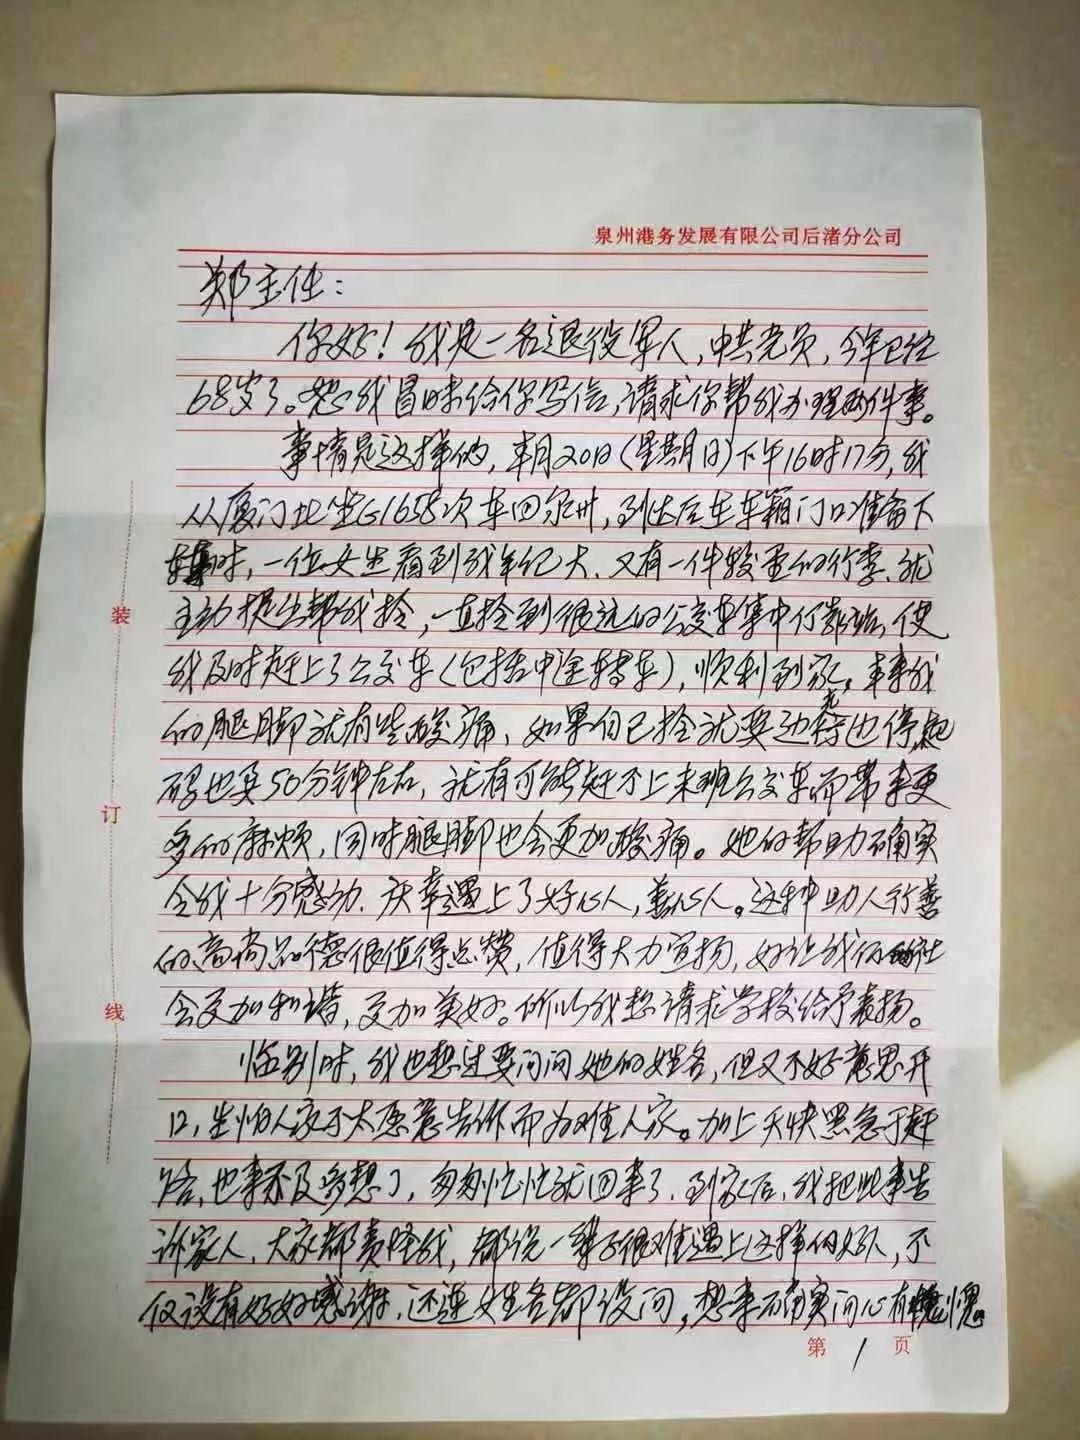 泉州港务发展有限公司后渚分公司
郑主任：
你好！我是一名退役军人，中共党员，今年已经
68岁了。恕我冒昧给你写信，请求你帮我办理两件事。
事情是这样的，本月20日（星期日）下午16时17分，我
从厦门北坐G1658次车回泉州，到达后在车箱门口准备下
车时，一位女生看到我年纪大、又有一件较重的行李，就
主动提出帮我拎，一直拎到很远的公交车集中停靠站，使
我及时赶上了公交车（包括中途转车），顺利到家。本来我
的腿脚就有些酸痛，如果自己拎就要边走边停，起
码也要50分钟左右，就有可能赶不上末班公交车而带来更
多的麻烦，同时腿脚也会更加酸痛。她的帮助确实
令我十分感动，庆幸遇上了好心人，善心人。这种助人行善
的高尚品德很值得点赞，值得大力宣扬，好让我们的社
会更加和谐，更加美好。所以我想请求学校给予表扬。
临别时，我也想过要问问她的姓名，但又不好意思开
口，生怕人家不太愿意告诉而为难人家。加上天快黑急于赶
路，也来不及多想了，匆匆忙忙就回来了。到家后，我把此事告
诉家人，大家都责怪我，都说一辈子很难遇上这样的好人，不
仅没有好好感谢，还连女生名都没问，想来确实问心有愧。
装
订
线
第1页